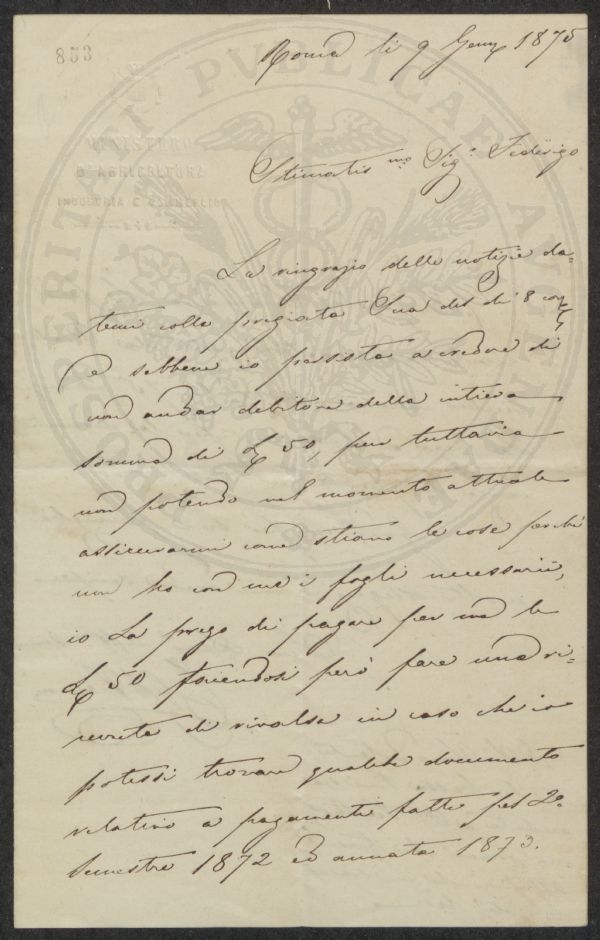 853
Roma li 9 Genn 1875
MINISTERO
D'AGRICOLTURA
INDUSTRIA E COMMERCIO
PROSPERITATI PVBLICAE AVGENDAE
Stimatis.mo Sig.r Federigo
La ringrazio delle notizie da=
temi colla pregiata Sua del di 8 corr
e sebbene io persista a credere di
non andar debitore della intiera
somma di L 50, pur tuttavia
non potendo nel momento attuale
assicurarmi come stiano le cose perchè
non ho con me i fogli necessarii,
io La prego di pagare per me le
L 50 facendosi però fare una ri=
cevuta di rivalsa in caso che io
potessi trovare qualche documento
relativo a pagamenti fatti pel 2º
Semestre 1872 ed annata 1873.